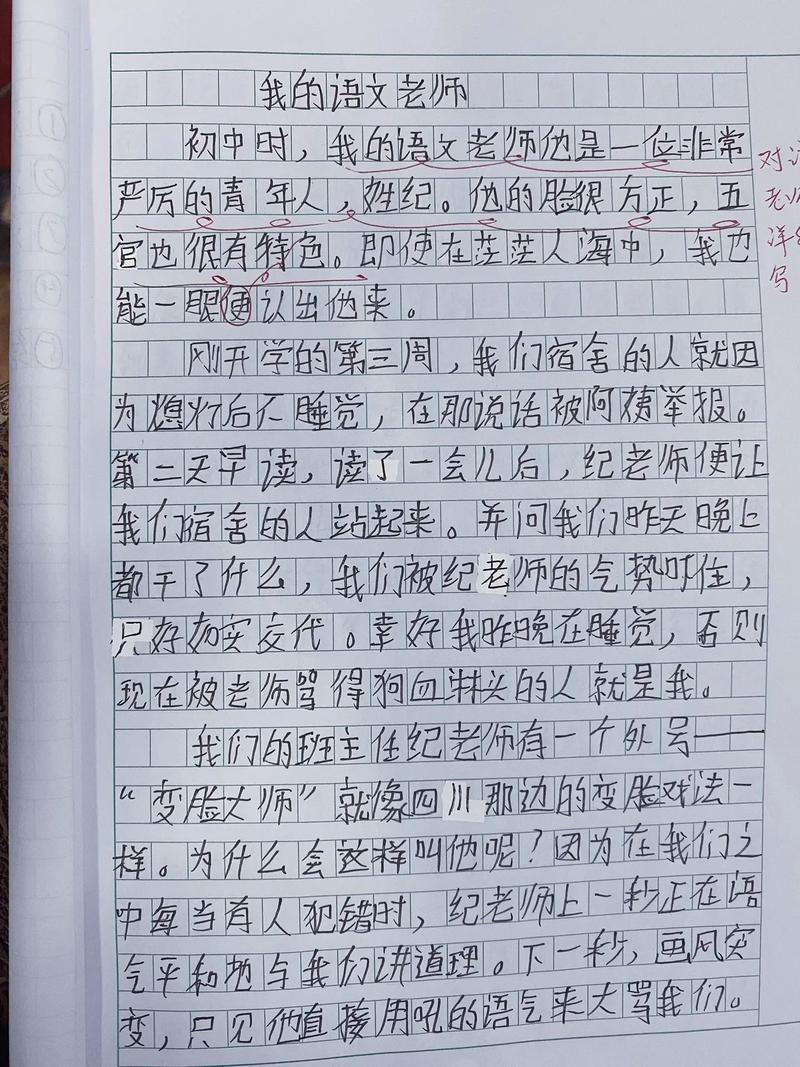 我的语文老师
初中时，我的语文老师他是一位非常
严厉的青年人，姓纪。他的脸很方正，五
官也很有特色。即使在茫茫人海中，我也
能一眼便认出他来。
刚开学的第三周，我们宿舍的人就因
为熄灯后不睡觉，在那说话被阿姨举报。
第二天早读，读了一会儿后，纪老师便让
我们宿舍的人站起来。并问我们昨天晚上
都干了什么，我们被纪老师的气势吓住，
只好如实交代。幸好我昨晚在睡觉，否则
现在被老师骂得狗血淋头的人就是我。
我们的班主任纪老师有一个外号——
“变脸大师”就像四川那边的变脸戏法一
样。为什么会这样叫他呢？因为在我们之
中每当有人犯错时，纪老师上一秒正在语
气平和地与我们讲道理。下一秒，画风突
变，只见他直接用吼的语气来大骂我们。
对
老师
详
写